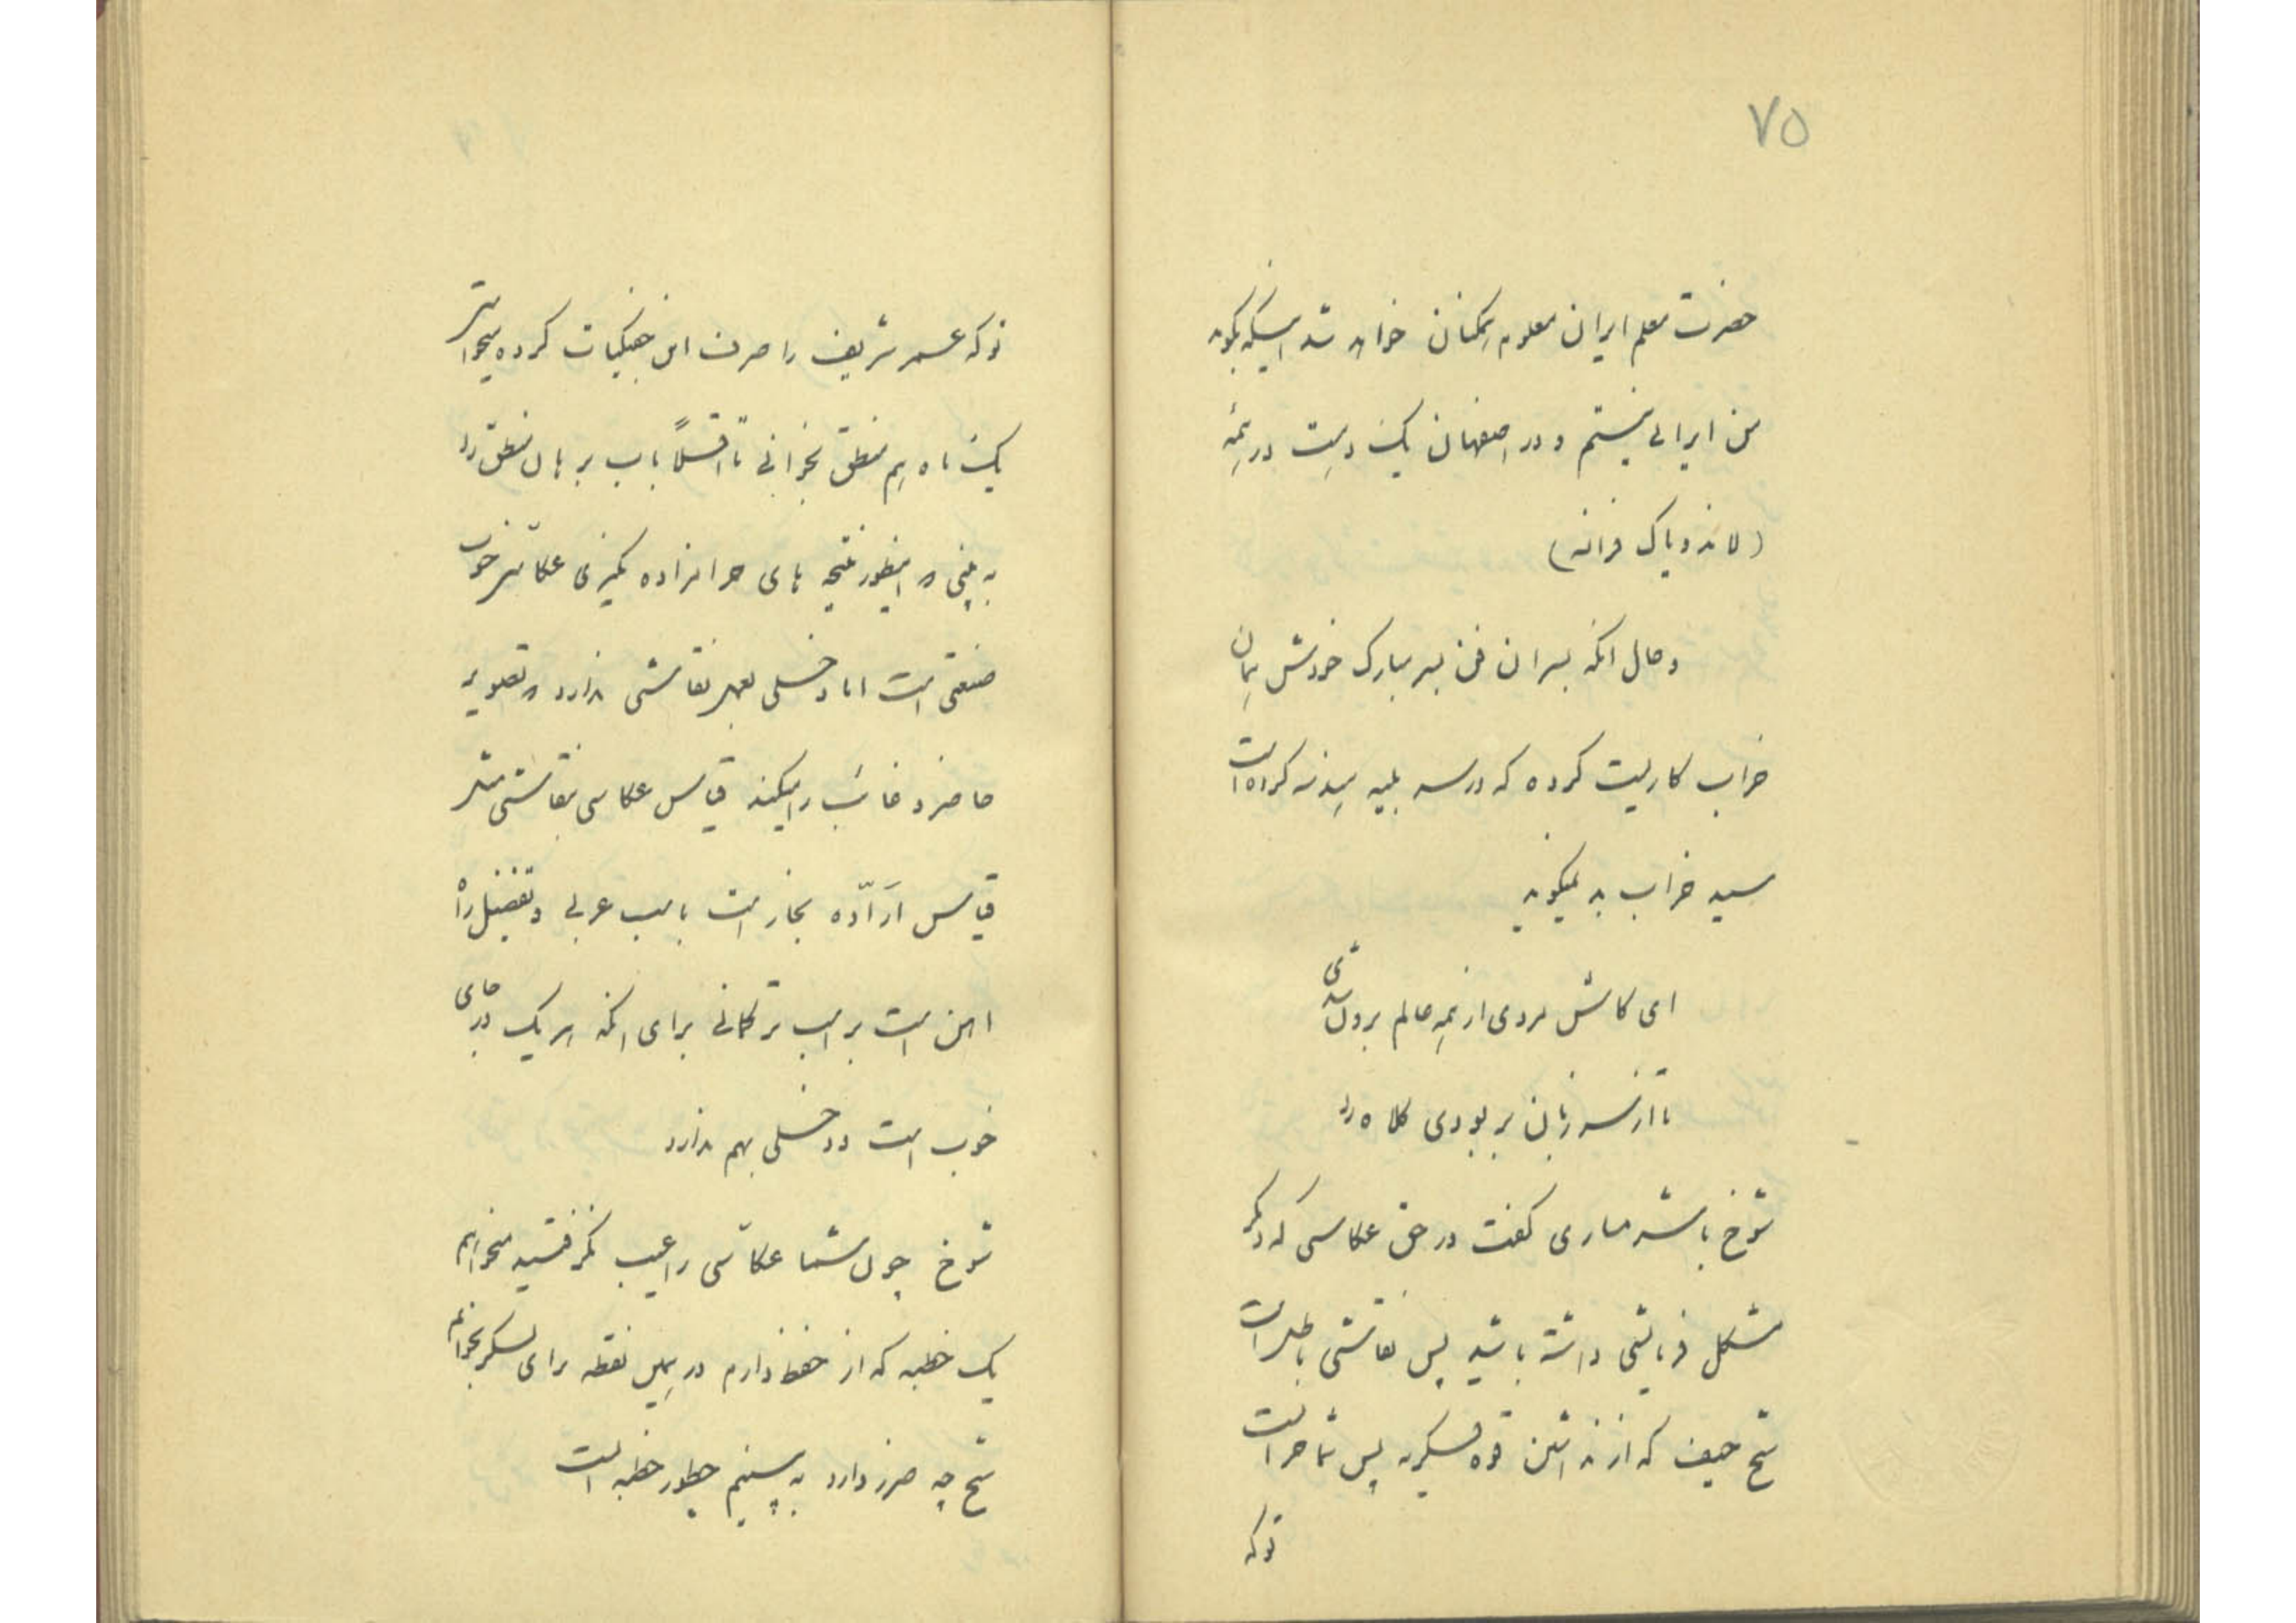 ۷۵
حضرت معلم ایران معلوم همکنان خواهد شد اینکه بگوید
من ایرانی نیستم و در اصفهان یک دست در نیمه
(لاندو یاک فرانه)
و حال انکه بسران فن بسر مبارک خودش همان
خراب کاریست کرده که در سه بلیه کرده است
سید خراب بد نمیگوید
ای کاش مردی از همه عالم بر دل شی
تا از سر زنان بر بودی کلاه را
شوخ با شرمساری گفت در حق عکاسی که دیگر
مشکل فرمایشی داشته باشید پس نقاشی باطل است
شیخ حیف که از نداشتن قوه فسکریه پس شما حر است
توکه
توکه عمر شریف را صرف این جفنکیات کرده میخواستی
یک ماه هم منطق بخوانی تا اقلاً باب برهان منطق را
به بینی و اینطور نتیجه های حرامزاده نگیری عکاسی خوب
صنعتی است اما دخلی بعهد نقاشی ندارد و تصویر
حاضر و غائب را میکند قیاس عکاسی بنقاشی مثل
قیاس ارّاده بخار است با اسب عربی و تفضیل راه
اهن است بر اسب ترکمانی برای انکه هر یک در جای
خوب است و دخلی بهم ندارد
شوخ چون شما عکاسی را عیب نگرفتید میخواهم
یک خطبه که از حفظ دارم در همین نقطه برای لسکر بخوانم
شیخ چه ضرر دارد به بینیم چطور خطبه است